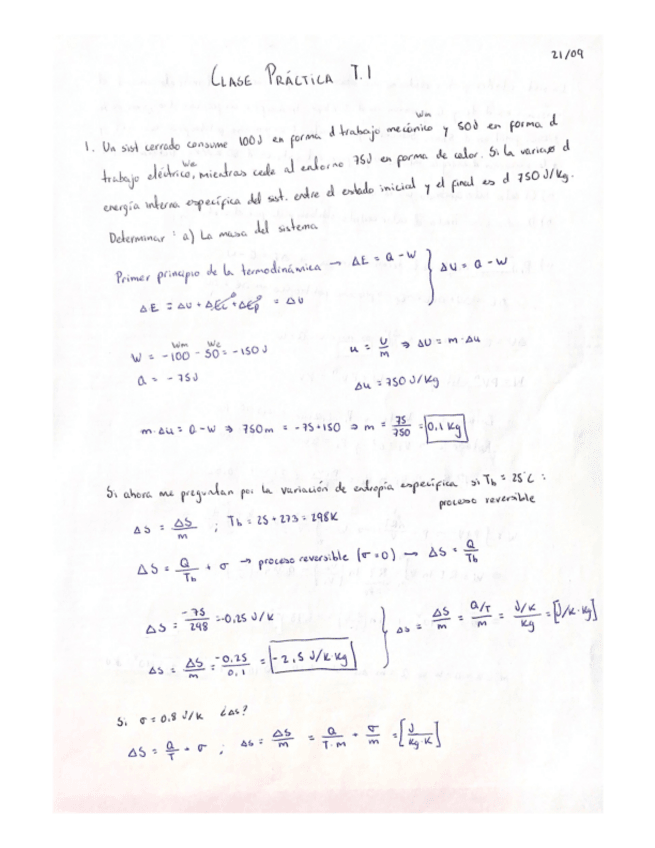 21/09
CLASE PRÁCTICA T.1
1. Un sist cerrado consume 100J en forma d trabajo mecánico Wm y 50J en forma d
trabajo eléctrico We, mientras cede al entorno 75J en forma de calor. Si la variac d
energía interna específica del sist. entre el estado inicial y el final es d 750 J/Kg.
Determinar : a) La masa del sistema
Primer principio de la termodinámica → ΔE = Q - W } ΔU = Q - W
ΔE = ΔU + ΔEc⁰ + ΔEp⁰ = ΔU
Wm We
W = -100 - 50 = -150 J u = U/m ⇒ ΔU = m · Δu
Q = - 75J Δu = 750 J/Kg
m·Δu = Q - W ⇒ 750m = -75+150 ⇒ m = 75/750 = 0.1 Kg
Si ahora me preguntan por la variación de entropía específica si Tb = 25°C :
proceso reversible
Δs = ΔS/m ; Tb = 25 + 273 = 298K
ΔS = Q/Tb + σ → proceso reversible (σ=0) → ΔS = Q/Tb
ΔS = -75/298 = -0.25 J/K } Δs = ΔS/m = Q/T/m = J/K/Kg = [J/K·Kg]
Δs = ΔS/m = -0.25/0.1 = -2.5 J/K·Kg
Si σ = 0.8 J/K ¿Δs?
ΔS = Q/T + σ ; Δs = ΔS/m = Q/T·m + σ/m = [J/Kg·K]